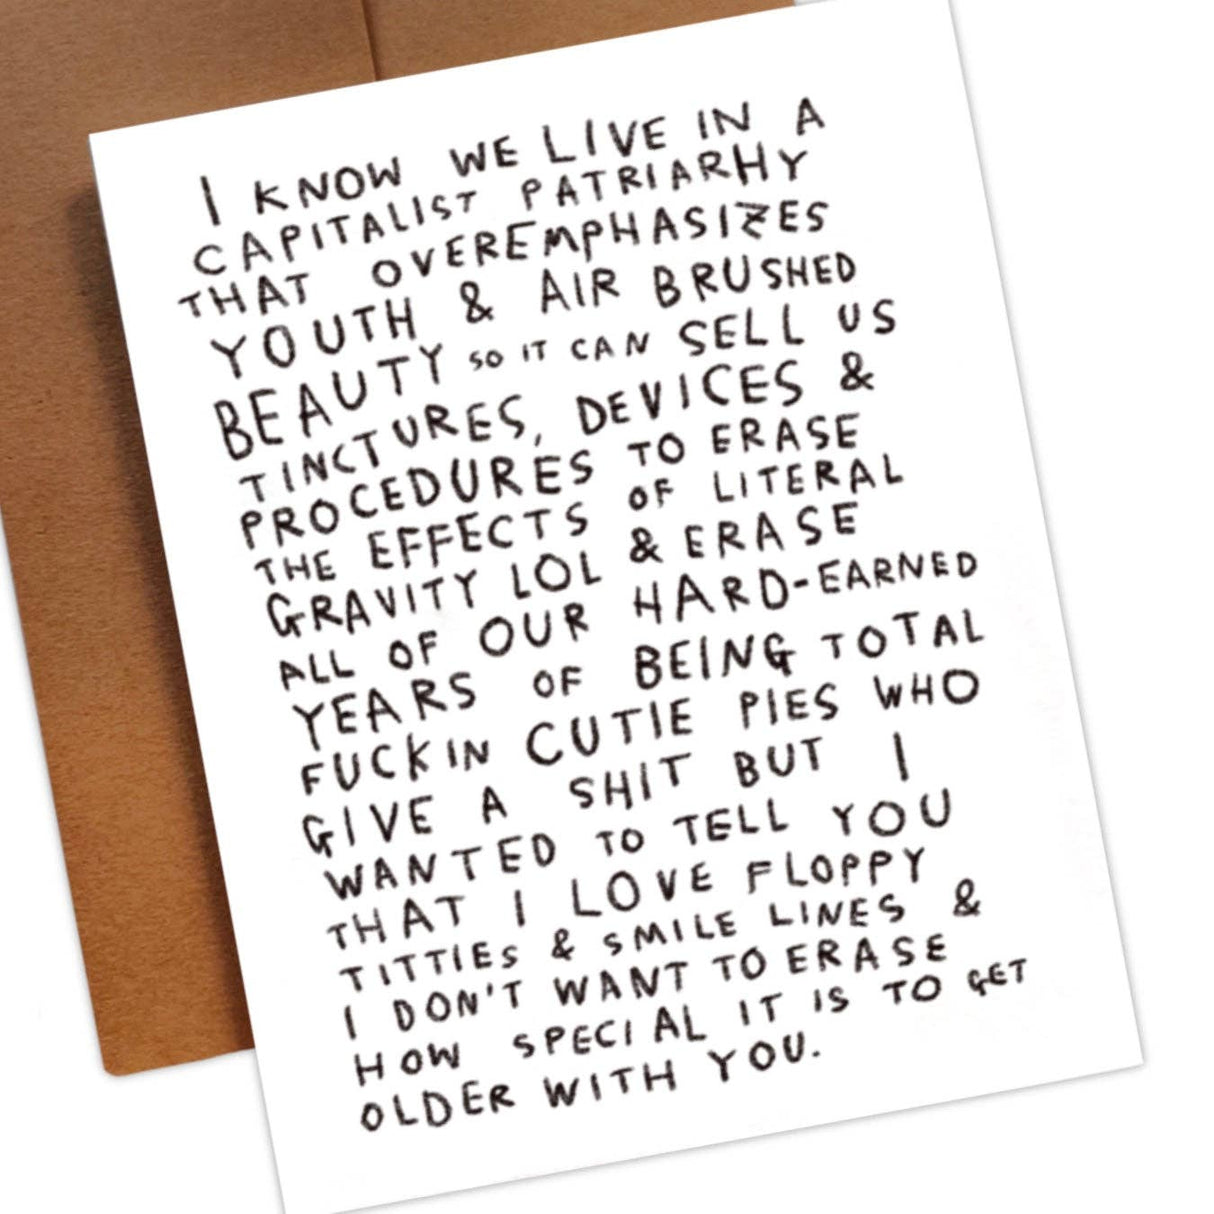 I KNOW WE LIVE IN A
CAPITALIST PATRIARHY
THAT OVEREMPHASIZES
YOUTH & AIR BRUSHED
BEAUTY SO IT CAN SELL US
TINCTURES, DEVICES &
PROCEDURES TO ERASE
THE EFFECTS OF LITERAL
GRAVITY LOL & ERASE
ALL OF OUR HARD-EARNED
YEARS OF BEING TOTAL
FUCKIN CUTIE PIES WHO
GIVE A SHIT BUT I
WANTED TO TELL YOU
THAT I LOVE FLOPPY
TITTIES & SMILE LINES &
I DON'T WANT TO ERASE
HOW SPECIAL IT IS TO GET
OLDER WITH YOU.